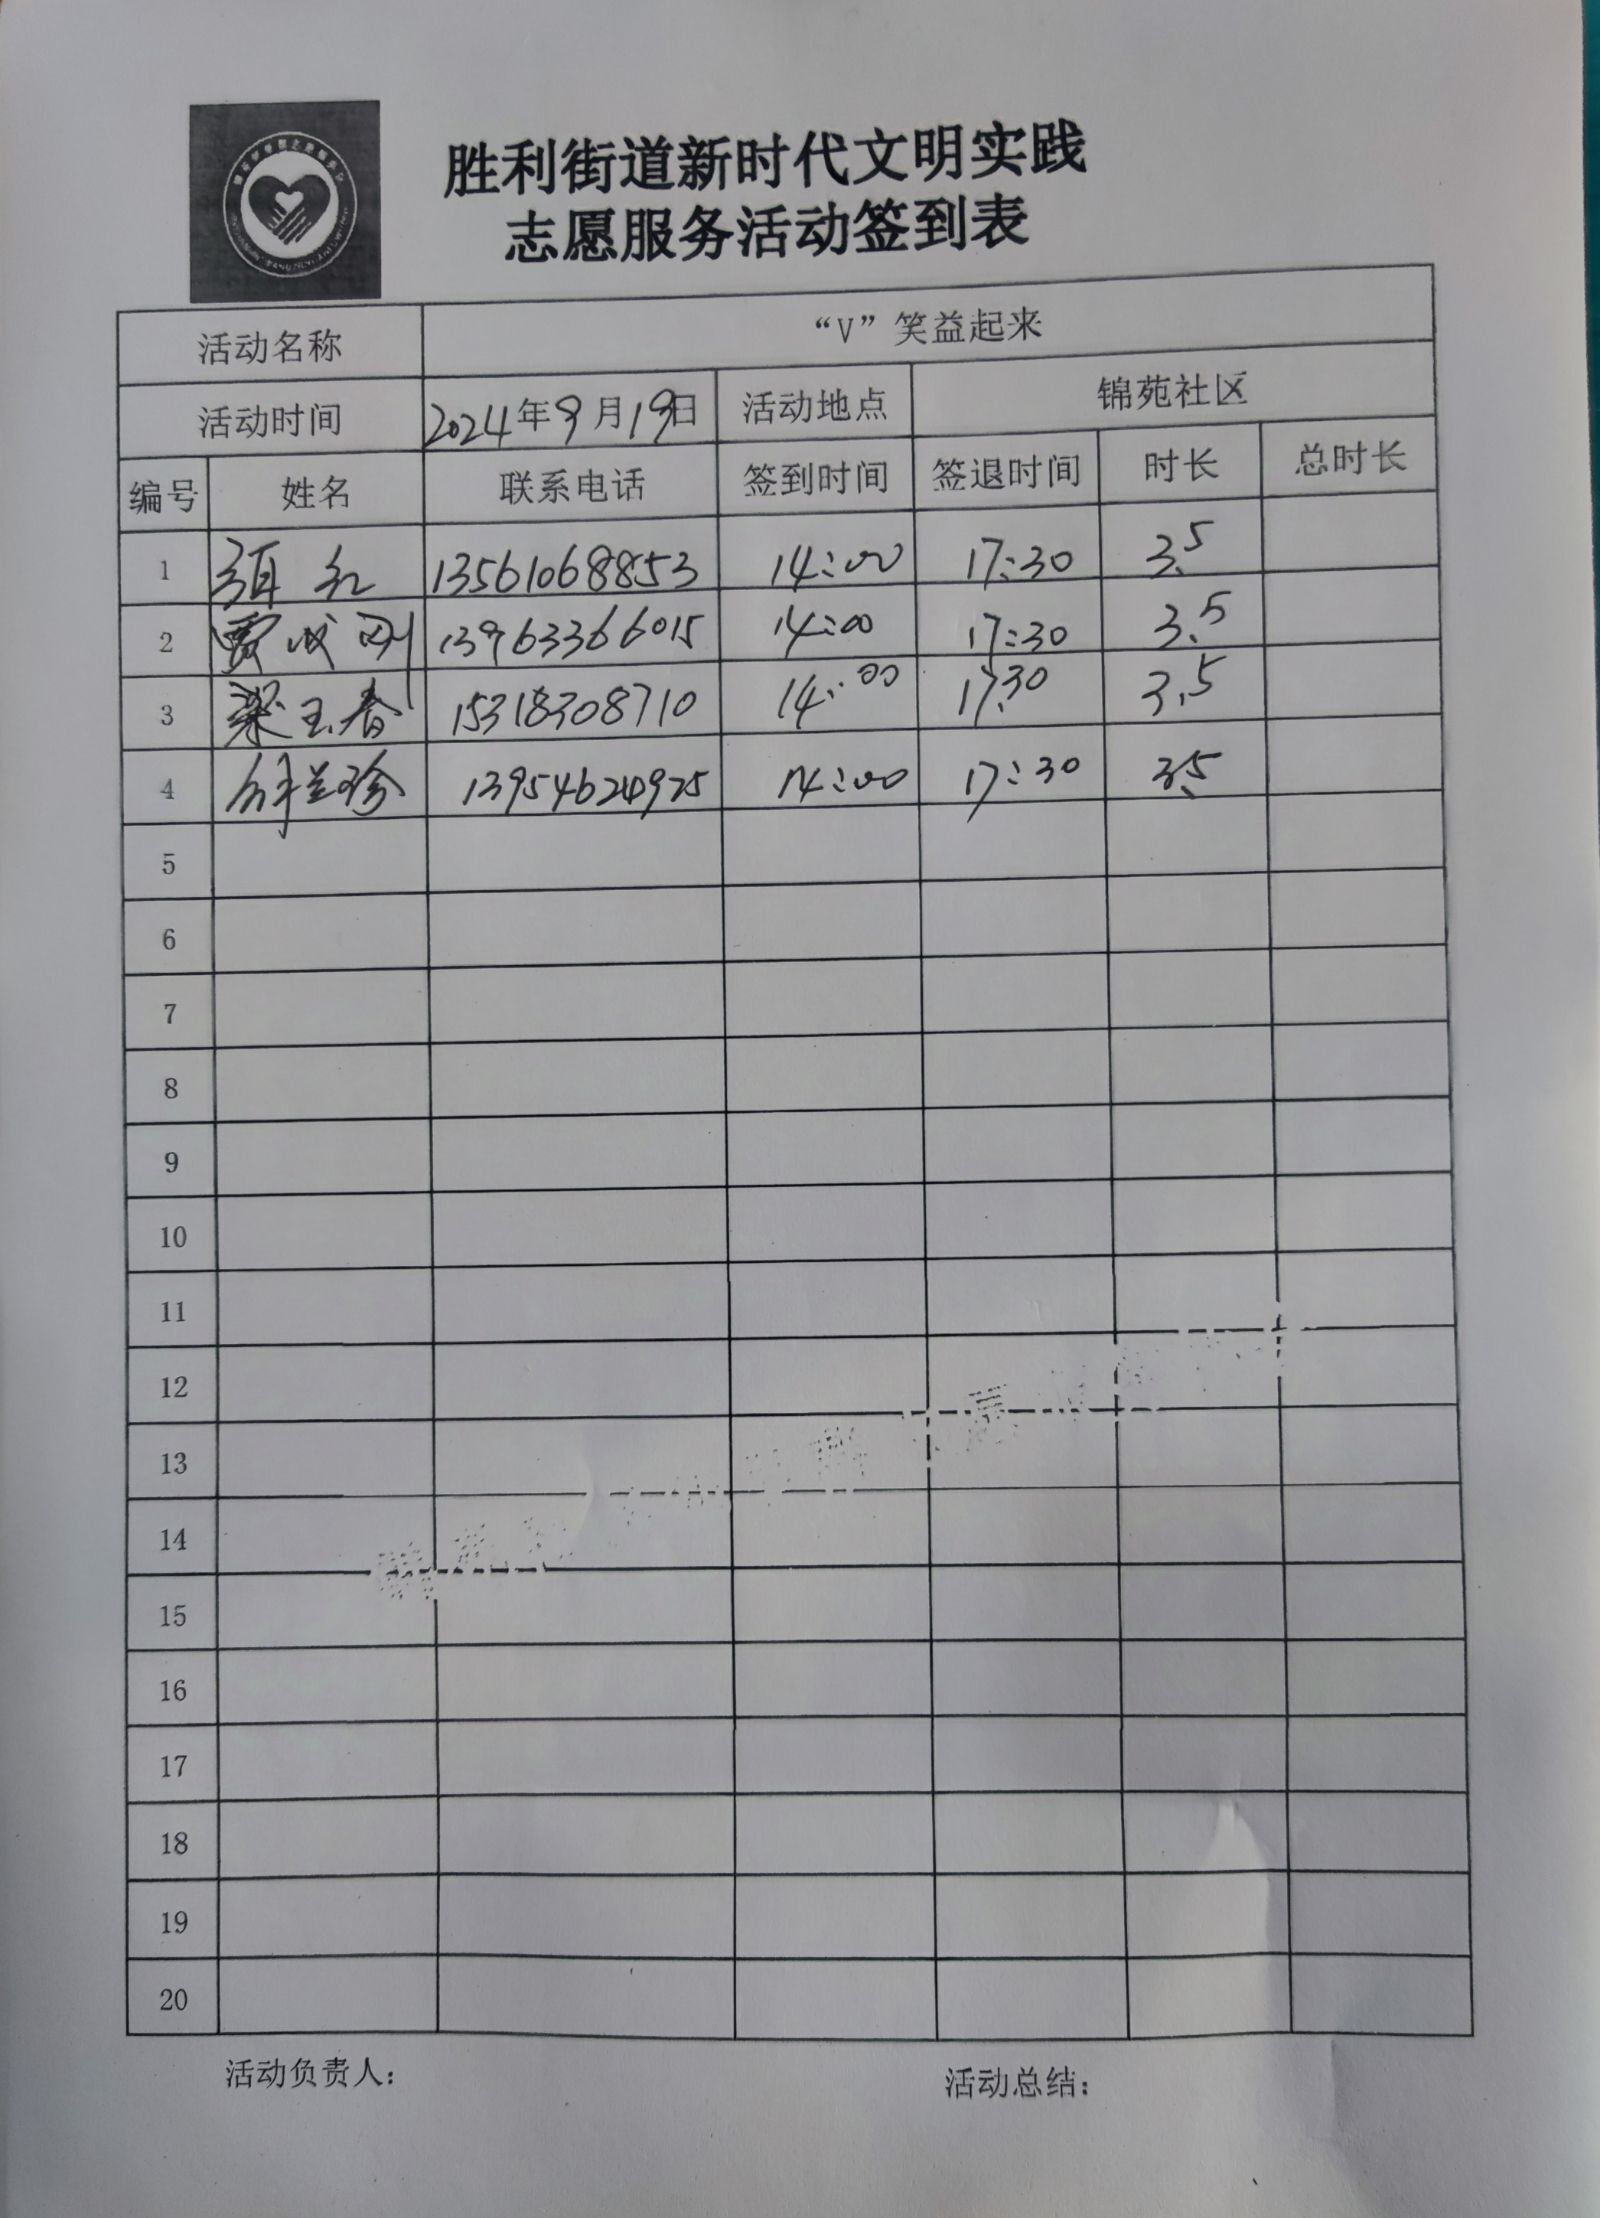 胜利街道新时代文明实践
志愿服务活动签到表
活动名称 “V”笑益起来
活动时间 2024年9月19日 活动地点 锦苑社区
编号 姓名 联系电话 签到时间 签退时间 时长 总时长
1 13561068853 14:00 17:30 3.5
2 贾成刚 13963366015 14:00 17:30 3.5
3 梁玉春 15318308710 14:00 17:30 3.5
4 兰珍 13954624925 14:00 17:30 3.5
5
6
7
8
9
10
11
12
13
14
15
16
17
18
19
20
活动负责人： 活动总结：